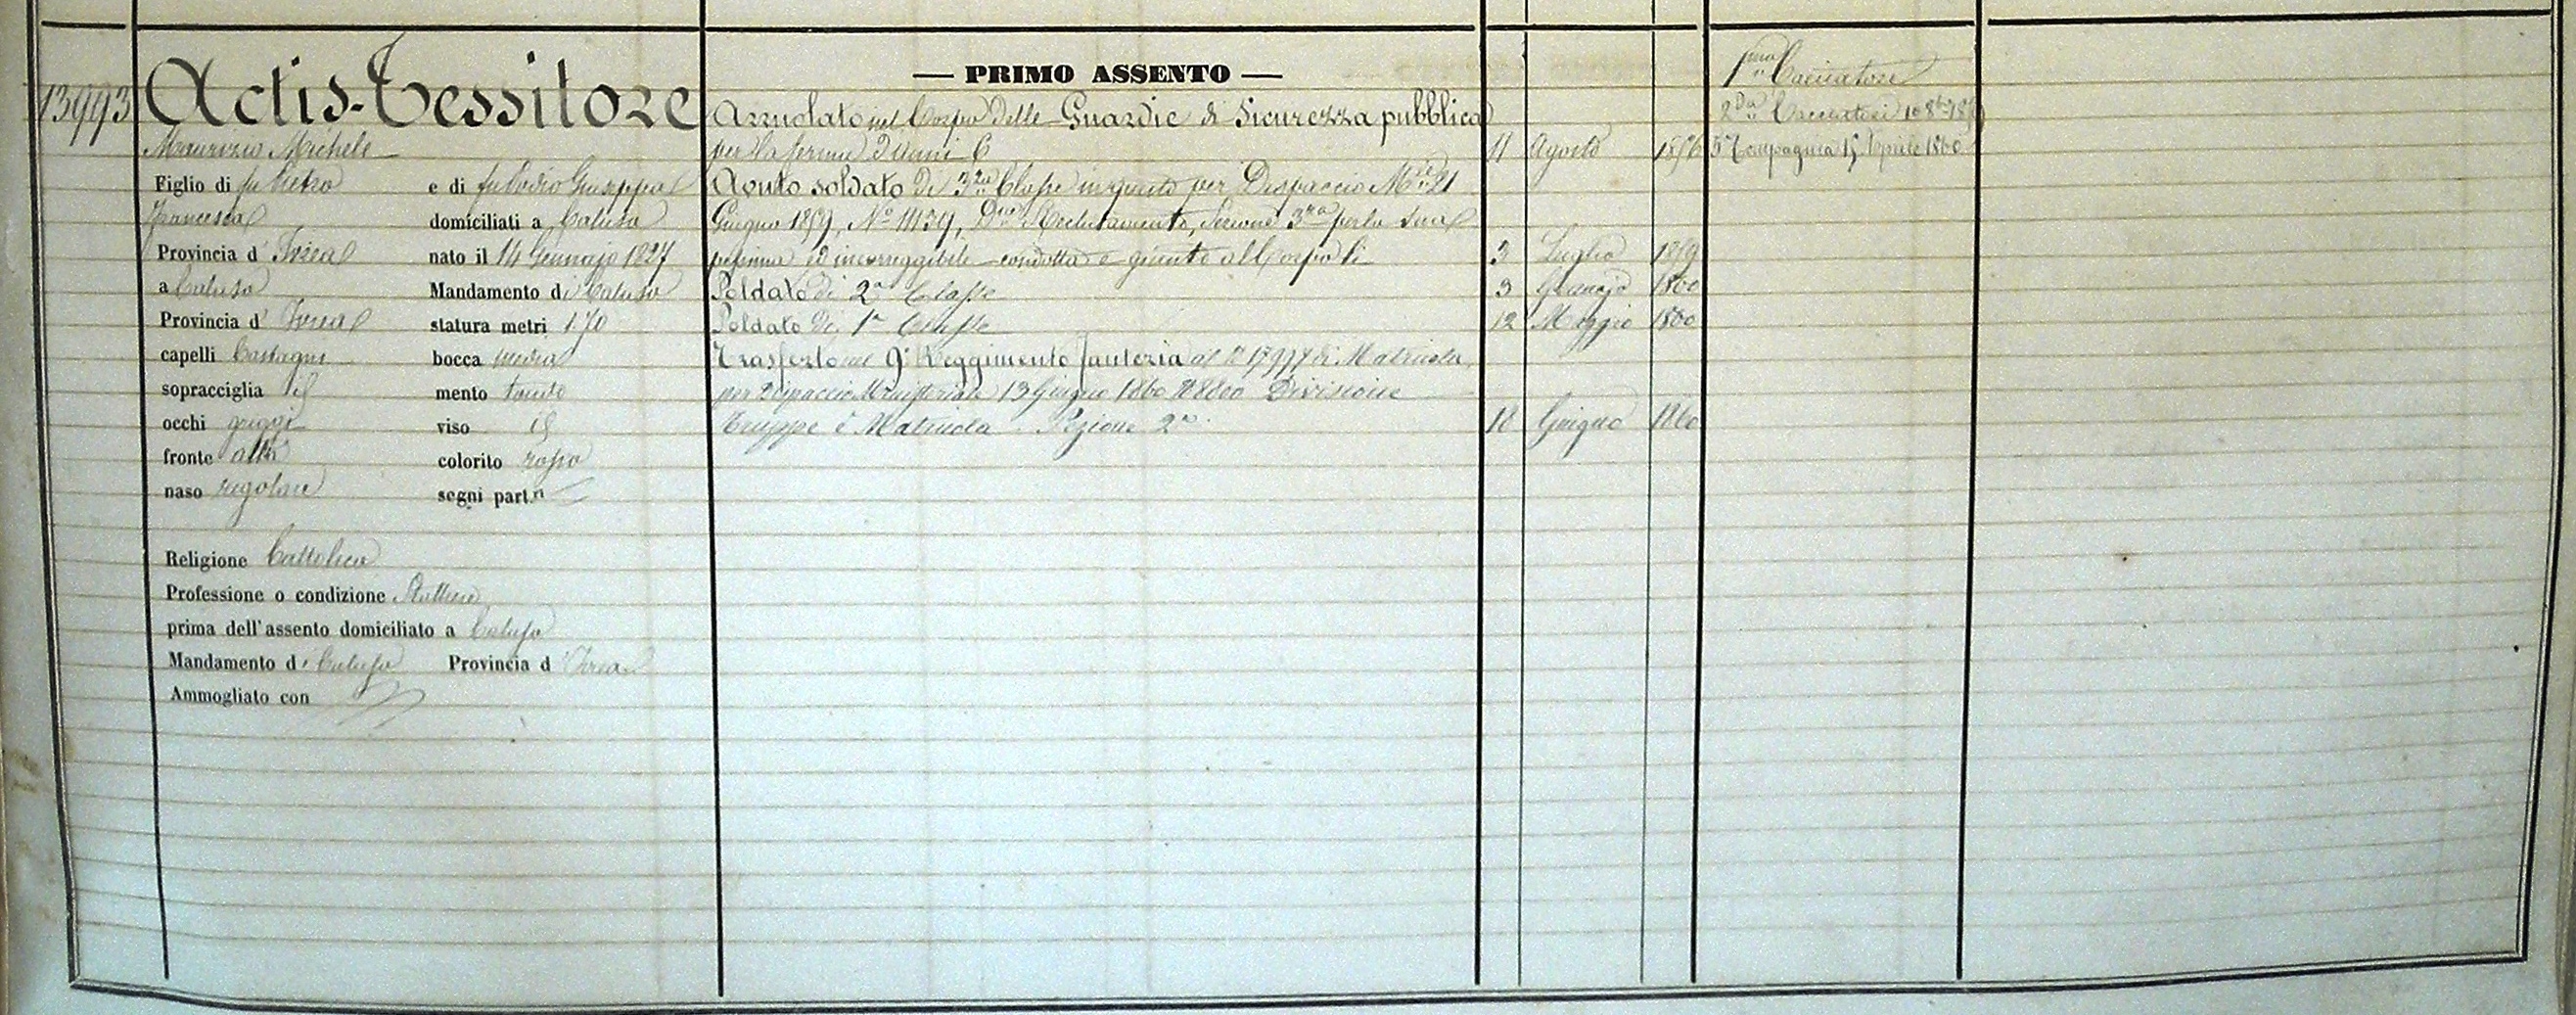 13993
Actis-Tessitore
Maurizio Michele
Figlio di fu Pietro e di fu Bodio Giuseppa
Francesca domiciliati a Caluso
Provincia d' Ivrea nato il 14 Gennajo 1827
a Caluso Mandamento di Caluso
Provincia d' Ivrea statura metri 1.70
capelli Castagni bocca media
sopracciglia id mento tondo
occhi griggi viso id
fronte alta colorito rosso
naso regolare segni part.ri
Religione Cattolica
Professione o condizione
prima dell'assento domiciliato a Caluso
Mandamento di Caluso Provincia d' Ivrea
Ammogliato con
— PRIMO ASSENTO —
Arruolato nel Corpo delle Guardie di Sicurezza pubblica
per la ferma d'anni 6 11 Agosto 1856
Avuto soldato di 3za Classe in questo per Dispaccio Mle 21
Giugno 1859, No 11139, Reclutamento, Sezione 3za per la sua
pessima ed incorreggibile condotta e giunto al Corpo li 3 Luglio 1859
Soldato di 2a Classe 3 Gennajo 1860
Soldato di 1a Classe 12 Maggio 1860
Trasferto nel 9o Reggimento fanteria al No 17997 di Matricola
per Dispaccio Ministeriale 13 Giugno 1860 No 8800 Divisione
Truppe e Matricola Sezione 2a 18 Giugno 1860
1ma Cacciatori
2da Cacciatori 10 8bre 1859
57 Compagnia 15 Aprile 1860